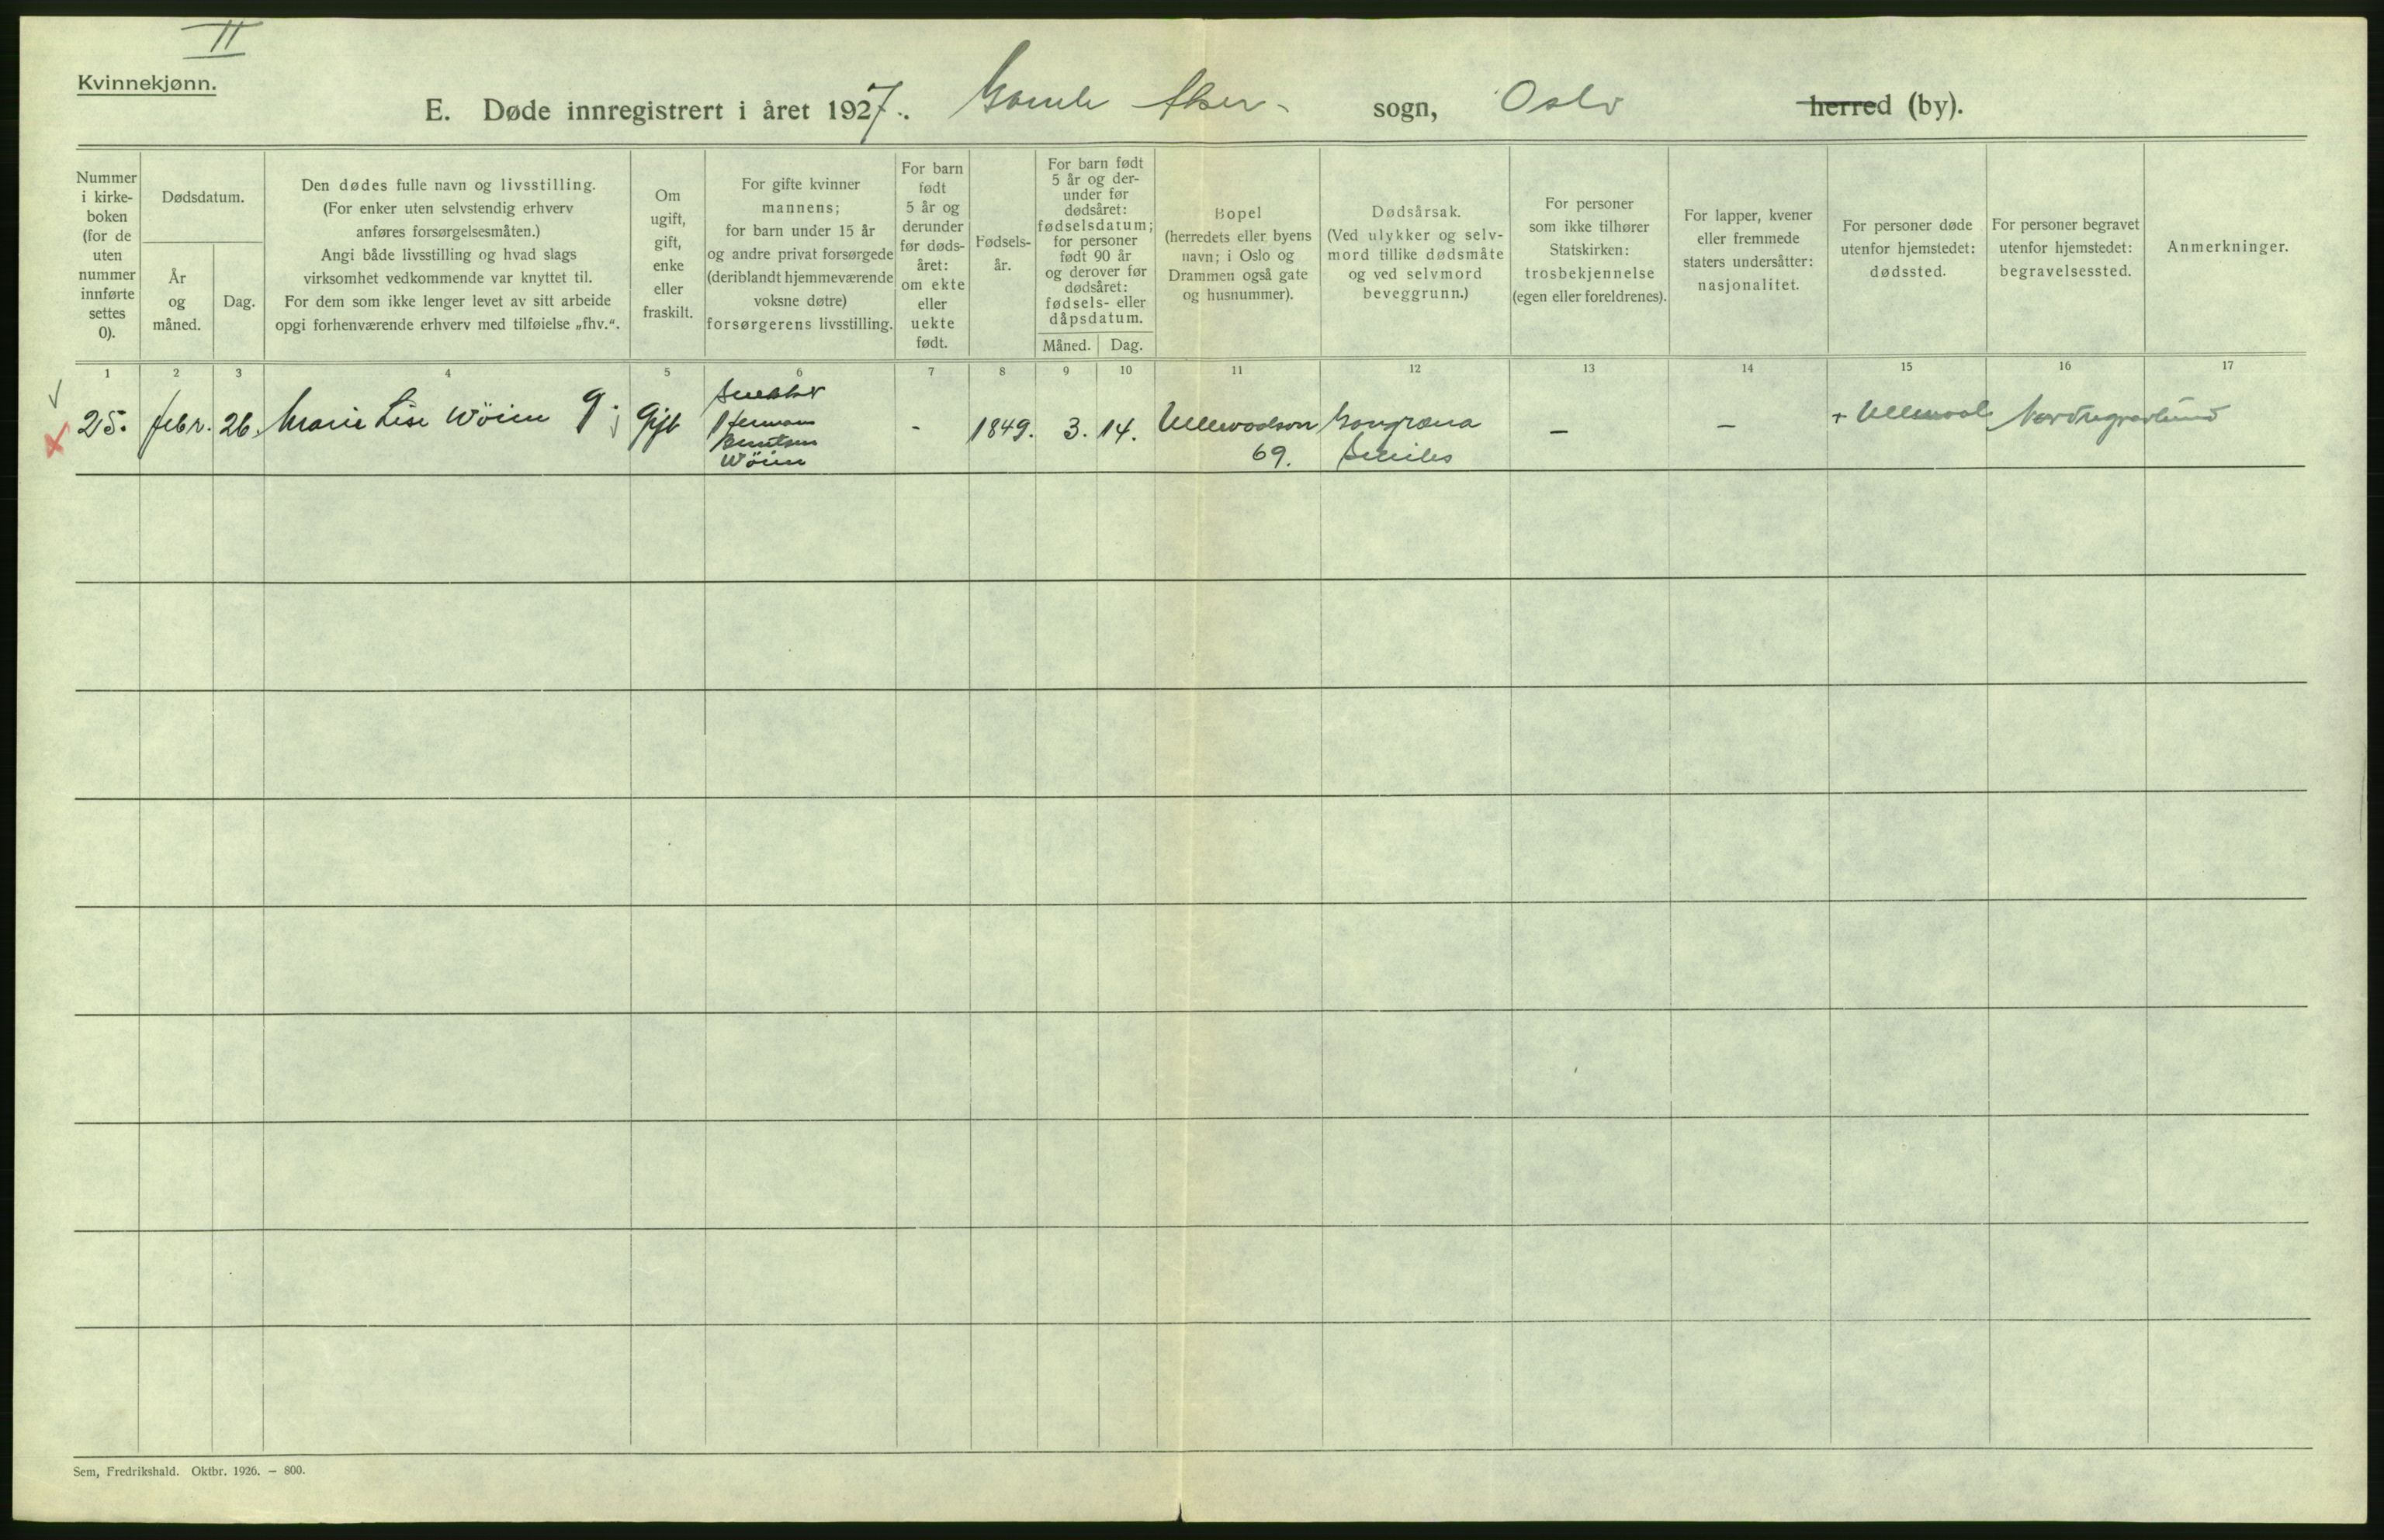 II
Kvinnekjønn.
E. Døde innregistrert i året 1927. Gamle Aker sogn, Oslo herred (by).
Nummer
i kirke-
boken
(for de
uten
nummer
innførte
settes
0).
Dødsdatum.
År
og
måned.
Dag.
Den dødes fulle navn og livsstilling.
(For enker uten selvstendig erhverv
anføres forsørgelsesmåten.)
Angi både livsstilling og hvad slags
virksomhet vedkommende var knyttet til.
For dem som ikke lenger levet av sitt arbeide
opgi forhenværende erhverv med tilføielse „fhv.“.
Om
ugift,
gift,
enke
eller
fraskilt.
For gifte kvinner
mannens;
for barn under 15 år
og andre privat forsørgede
(deriblandt hjemmeværende
voksne døtre)
forsørgerens livsstilling.
For barn
født
5 år og
derunder
før døds-
året:
om ekte
eller
uekte
født.
Fødsels-
år.
For barn født
5 år og der-
under før
dødsåret:
fødselsdatum;
for personer
født 90 år
og derover før
dødsåret:
fødsels- eller
dåpsdatum.
Måned.
Dag.
Bopel
(herredets eller byens
navn; i Oslo og
Drammen også gate
og husnummer).
Dødsårsak.
(Ved ulykker og selv-
mord tillike dødsmåte
og ved selvmord
beveggrunn.)
For personer
som ikke tilhører
Statskirken:
trosbekjennelse
(egen eller foreldrenes).
For lapper, kvener
eller fremmede
staters undersåtter:
nasjonalitet.
For personer døde
utenfor hjemstedet:
dødssted.
For personer begravet
utenfor hjemstedet:
begravelsessted.
Anmerkninger.
1 2 3 4 5 6 7 8 9 10 11 12 13 14 15 16 17
25. febr. 26. Marie Lise Wöien g; Gift
Snekker
Herman
Berntsen
Wöien
- 1849. 3. 14.
Ullevoalsvn
69.
Gangræna
Senilis
– –
+ Ullevoal Nordregravlund
Sem, Fredrikshald. Oktbr. 1926. — 800.